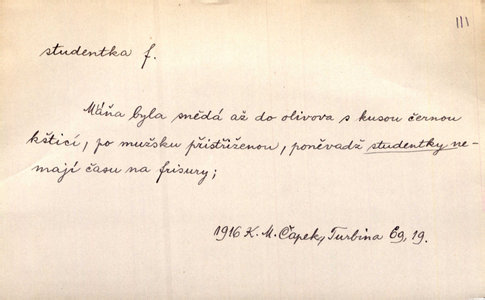 111
studentka f.
Máňa byla snědá až do olivova s kusou černou
kšticí, po mužsku přistřiženou, poněvadž studentky ne-
mají času na frisury;
1916 K. M. Čapek, Turbina 69, 19.